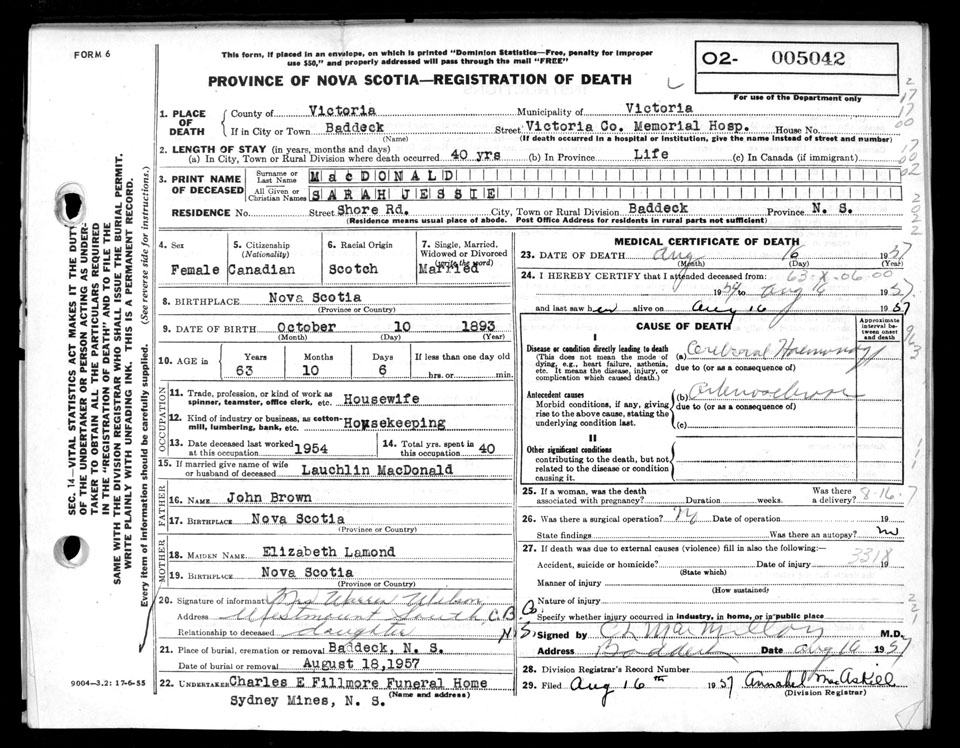 FORM 6
This form, if placed in an envelope, on which is printed "Dominion Statistics—Free, penalty for improper
use $50," and properly addressed will pass through the mail "FREE"
PROVINCE OF NOVA SCOTIA—REGISTRATION OF DEATH
02- 005042
For use of the Department only
1. PLACE OF DEATH
County of Victoria Municipality of Victoria
If in City or Town Baddeck Street Victoria Co. Memorial Hosp. House No.
(Name) (If death occurred in a hospital or institution, give the name instead of street and number)
2. LENGTH OF STAY (in years, months and days)
(a) In City, Town or Rural Division where death occurred 40 yrs (b) In Province Life (c) In Canada (if immigrant)
3. PRINT NAME OF DECEASED
Surname or Last Name MacDONALD
All Given or Christian Names SARAH JESSIE
RESIDENCE No. Street Shore Rd. City, Town or Rural Division Baddeck Province N. S.
(Residence means usual place of abode. Post Office Address for residents in rural parts not sufficient)
4. Sex
Female
5. Citizenship
(Nationality)
Canadian
6. Racial Origin
Scotch
7. Single, Married, Widowed or Divorced
(write the word)
Married
8. BIRTHPLACE Nova Scotia
(Province or Country)
9. DATE OF BIRTH October 10 1893
(Month) (Day) (Year)
10. AGE in Years Months Days If less than one day old
63 10 6 hrs. or min.
OCCUPATION
11. Trade, profession, or kind of work as spinner, teamster, office clerk, etc. Housewife
12. Kind of industry or business, as cotton-mill, lumbering, bank, etc. Housekeeping
13. Date deceased last worked at this occupation 1954
14. Total yrs. spent in this occupation 40
15. If married give name of wife or husband of deceased Lauchlin MacDonald
FATHER
16. NAME John Brown
17. BIRTHPLACE Nova Scotia
(Province or Country)
MOTHER
18. MAIDEN NAME Elizabeth Lamond
19. BIRTHPLACE Nova Scotia
(Province or Country)
20. Signature of informant Mrs Warren Wilson
Address Westmount South C.B.
Relationship to deceased daughter N.S.
21. Place of burial, cremation or removal Baddeck, N. S.
Date of burial or removal August 18, 1957
22. UNDERTAKER Charles E Fillmore Funeral Home
(Name and address)
Sydney Mines, N. S.
9004—3.2: 17-6-55
MEDICAL CERTIFICATE OF DEATH
23. DATE OF DEATH Aug 16 1957
(Month) (Day) (Year)
24. I HEREBY CERTIFY that I attended deceased from:
63-X-06.00
1954 to Aug 16 1957.
and last saw her alive on Aug 16 1957
CAUSE OF DEATH
Approximate interval between onset and death
I
Disease or condition directly leading to death
(This does not mean the mode of dying, e.g., heart failure, asthenia, etc. It means the disease, injury, or complication which caused death.)
(a) Cerebral Haemorrhage
due to (or as a consequence of)
Antecedent causes
Morbid conditions, if any, giving rise to the above cause, stating the underlying condition last.
(b) Arteriosclerosis
due to (or as a consequence of)
(c)
II
Other significant conditions
contributing to the death, but not related to the disease or condition causing it.
25. If a woman, was the death associated with pregnancy? Duration weeks. Was there a delivery? 8-16-7
26. Was there a surgical operation? N Date of operation 19
State findings Was there an autopsy? no
27. If death was due to external causes (violence) fill in also the following:—
Accident, suicide or homicide? Date of injury 19
(State which)
3318
Manner of injury
(How sustained)
Nature of injury
Specify whether injury occurred in industry, in home, or in public place
Signed by C L MacMillan M.D.
Address Baddeck Date Aug 16 1957
28. Division Registrar's Record Number
29. Filed Aug 16th 1957 Annabel MacAskill
(Division Registrar)
SEC. 14—VITAL STATISTICS ACT MAKES IT THE DUTY
OF THE UNDERTAKER OR PERSON ACTING AS UNDER-
TAKER TO OBTAIN ALL THE PARTICULARS REQUIRED
IN THE "REGISTRATION OF DEATH" AND TO FILE THE
SAME WITH THE DIVISION REGISTRAR WHO SHALL ISSUE THE BURIAL PERMIT.
WRITE PLAINLY WITH UNFADING INK. THIS IS A PERMANENT RECORD.
Every item of information should be carefully supplied. (See reverse side for instructions.)